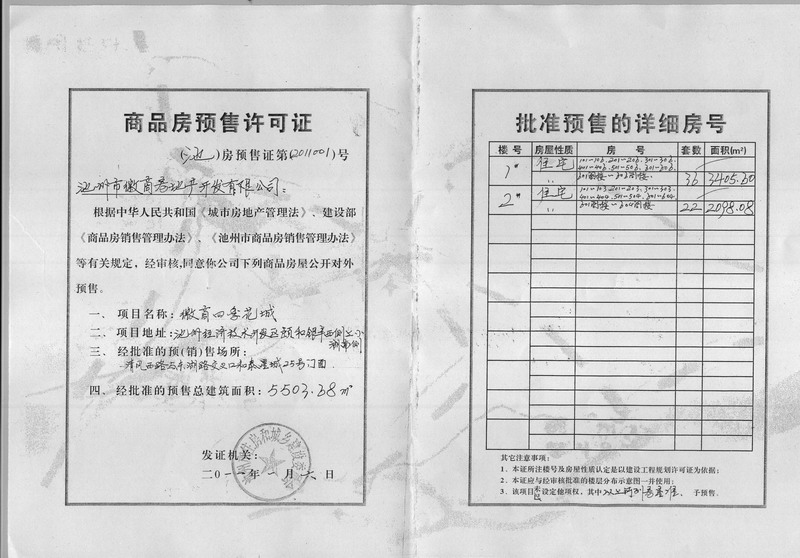 商品房预售许可证
(池)房预售证第(2011001)号
池州市徽商房地产开发有限公司:
根据中华人民共和国《城市房地产管理法》、建设部
《商品房销售管理办法》、《池州市商品房销售管理办法》
等有关规定，经审核,同意你公司下列商品房屋公开对外
预售。
一、项目名称:徽商四季花城
二、项目地址:池州经济技术开发区
三、经批准的预(销)售场所:
清风西路与平湖路交叉口和泰星城25号门面
四、经批准的预售总建筑面积:5503.38㎡
发证机关:
二〇一一年一月六日
批准预售的详细房号
楼号 房屋性质 房号 套数 面积(m²)
1# 住宅 101-106.201-206.301-306.
401-406.501-506.
36 3405.30
2# 住宅 101-103.201-203.301-303.
401-404.501-504.
22 2098.08
其它注意事项:
1、本证所注楼号及房屋性质认定是以建设工程规划许可证为依据;
2、本证应与经审核批准的楼层分布示意图一并使用;
3、该项目未设定他项权，其中以上所列房号准予预售。